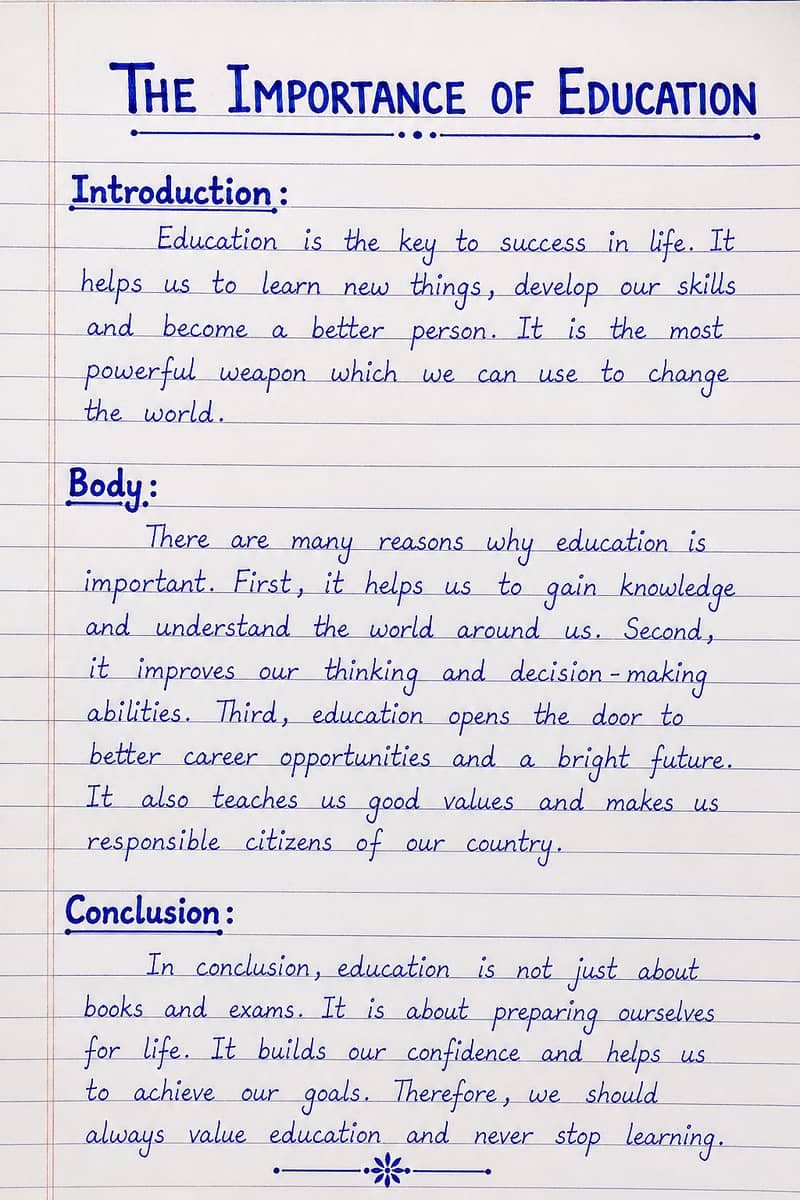 THE IMPORTANCE OF EDUCATION
Introduction:
Education is the key to success in life. It
helps us to learn new things, develop our skills
and become a better person. It is the most
powerful weapon which we can use to change
the world.
Body:
There are many reasons why education is
important. First, it helps us to gain knowledge
and understand the world around us. Second,
it improves our thinking and decision-making
abilities. Third, education opens the door to
better career opportunities and a bright future.
It also teaches us good values and makes us
responsible citizens of our country.
Conclusion:
In conclusion, education is not just about
books and exams. It is about preparing ourselves
for life. It builds our confidence and helps us
to achieve our goals. Therefore, we should
always value education and never stop learning.